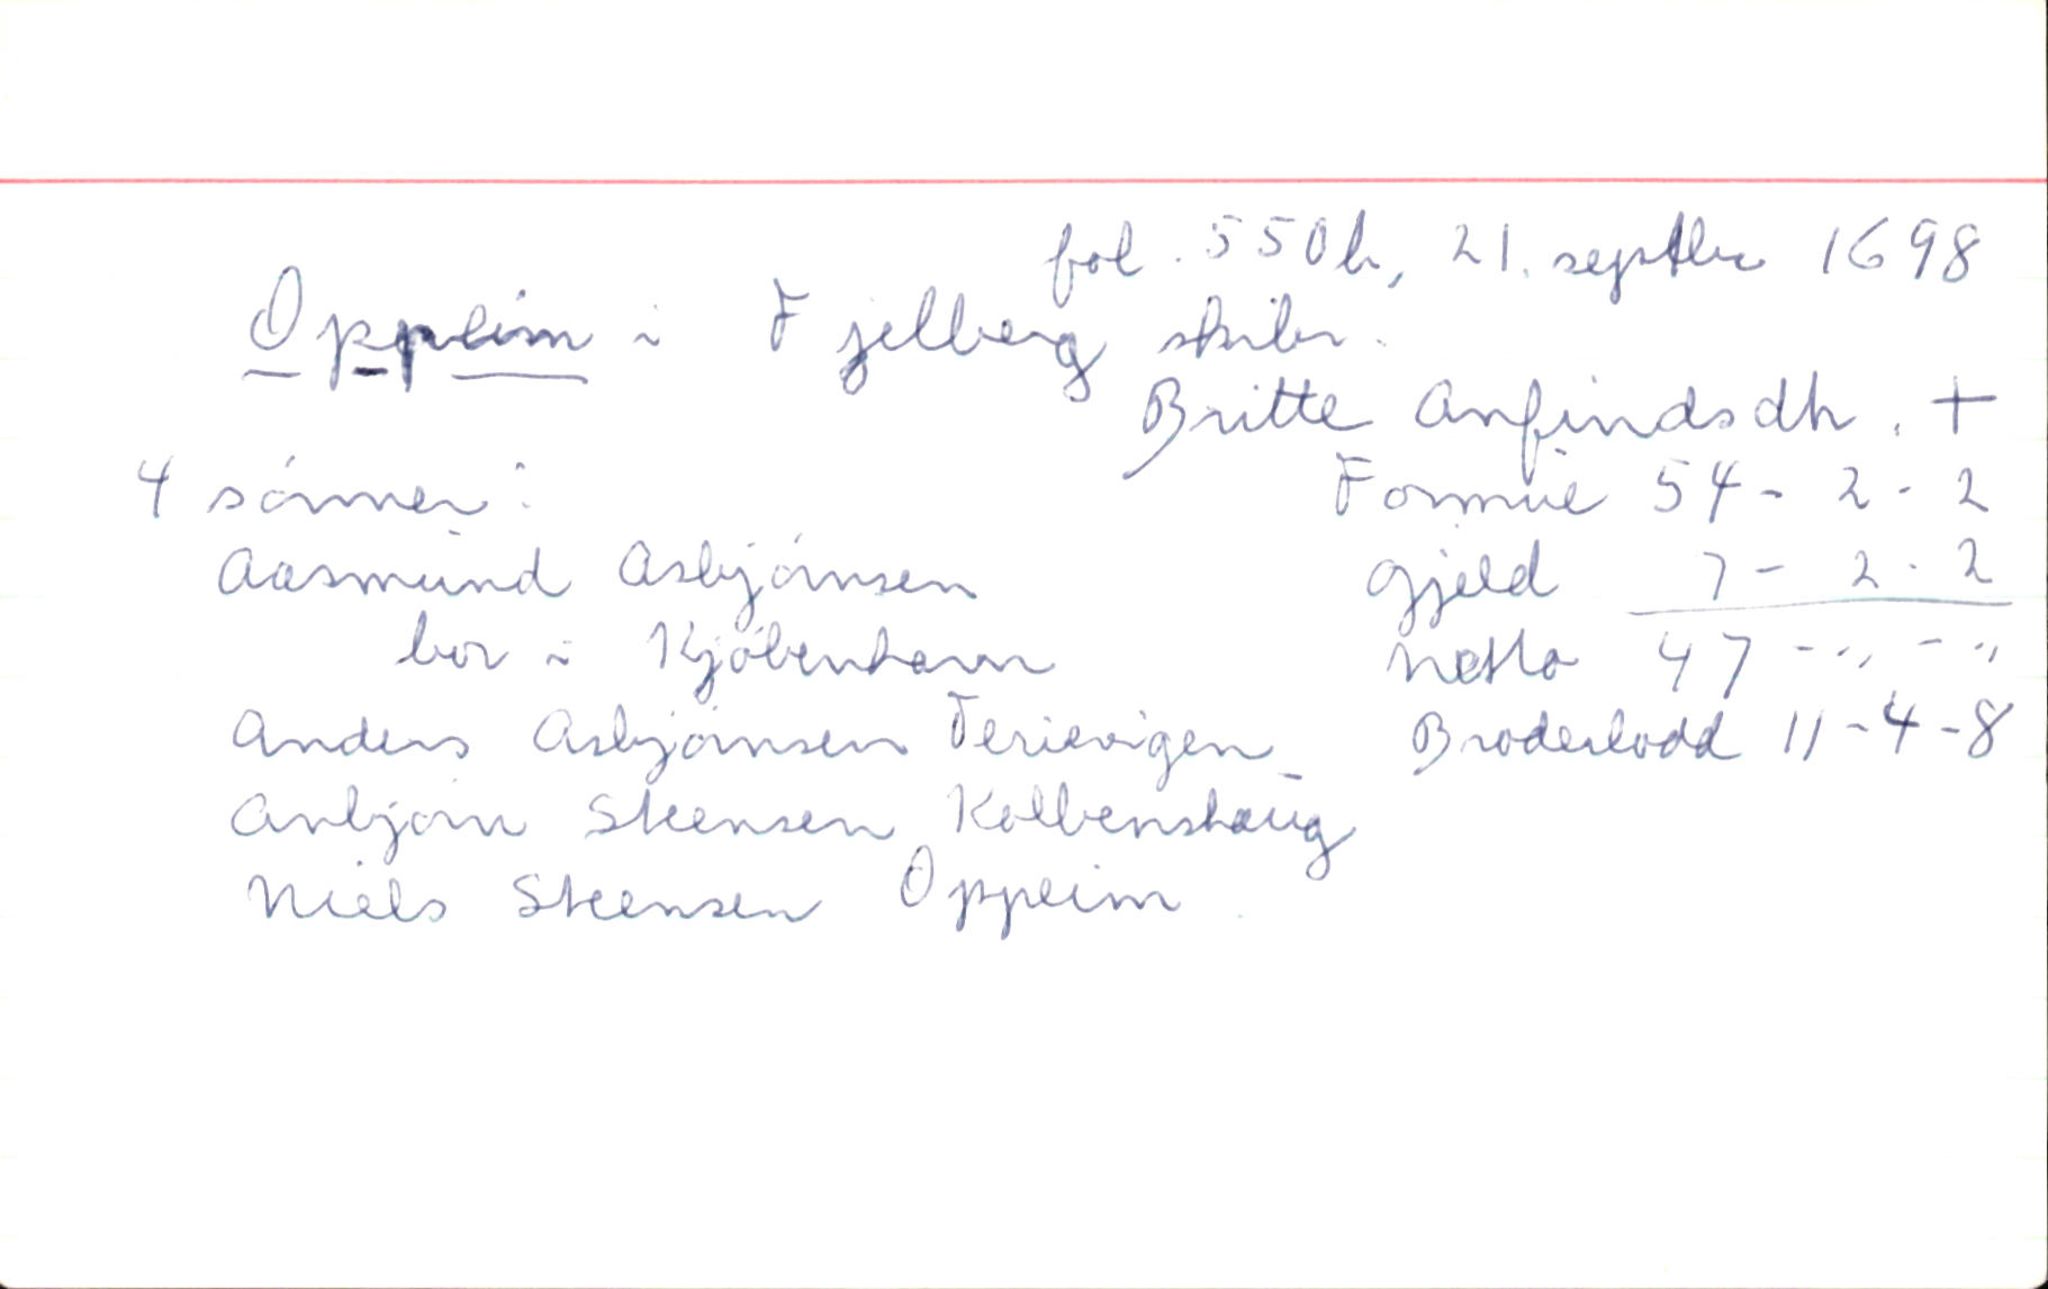 fol. 550b, 21. septbr 1698
Oppeim i Fjelberg skibr.
Britte Anfindsdtr. +
4 sónner: Formue 54 - 2 - 2
Aasmund Asbjórnsen gjeld 7 - 2 - 2
bor i Kjóbenhavn netto 47 - „ - „
Anders Asbjórnsen Terievigen Broderlodd 11 - 4 - 8
Anbjórn Steensen Kolbenshaug
Niels Steensen Oppeim